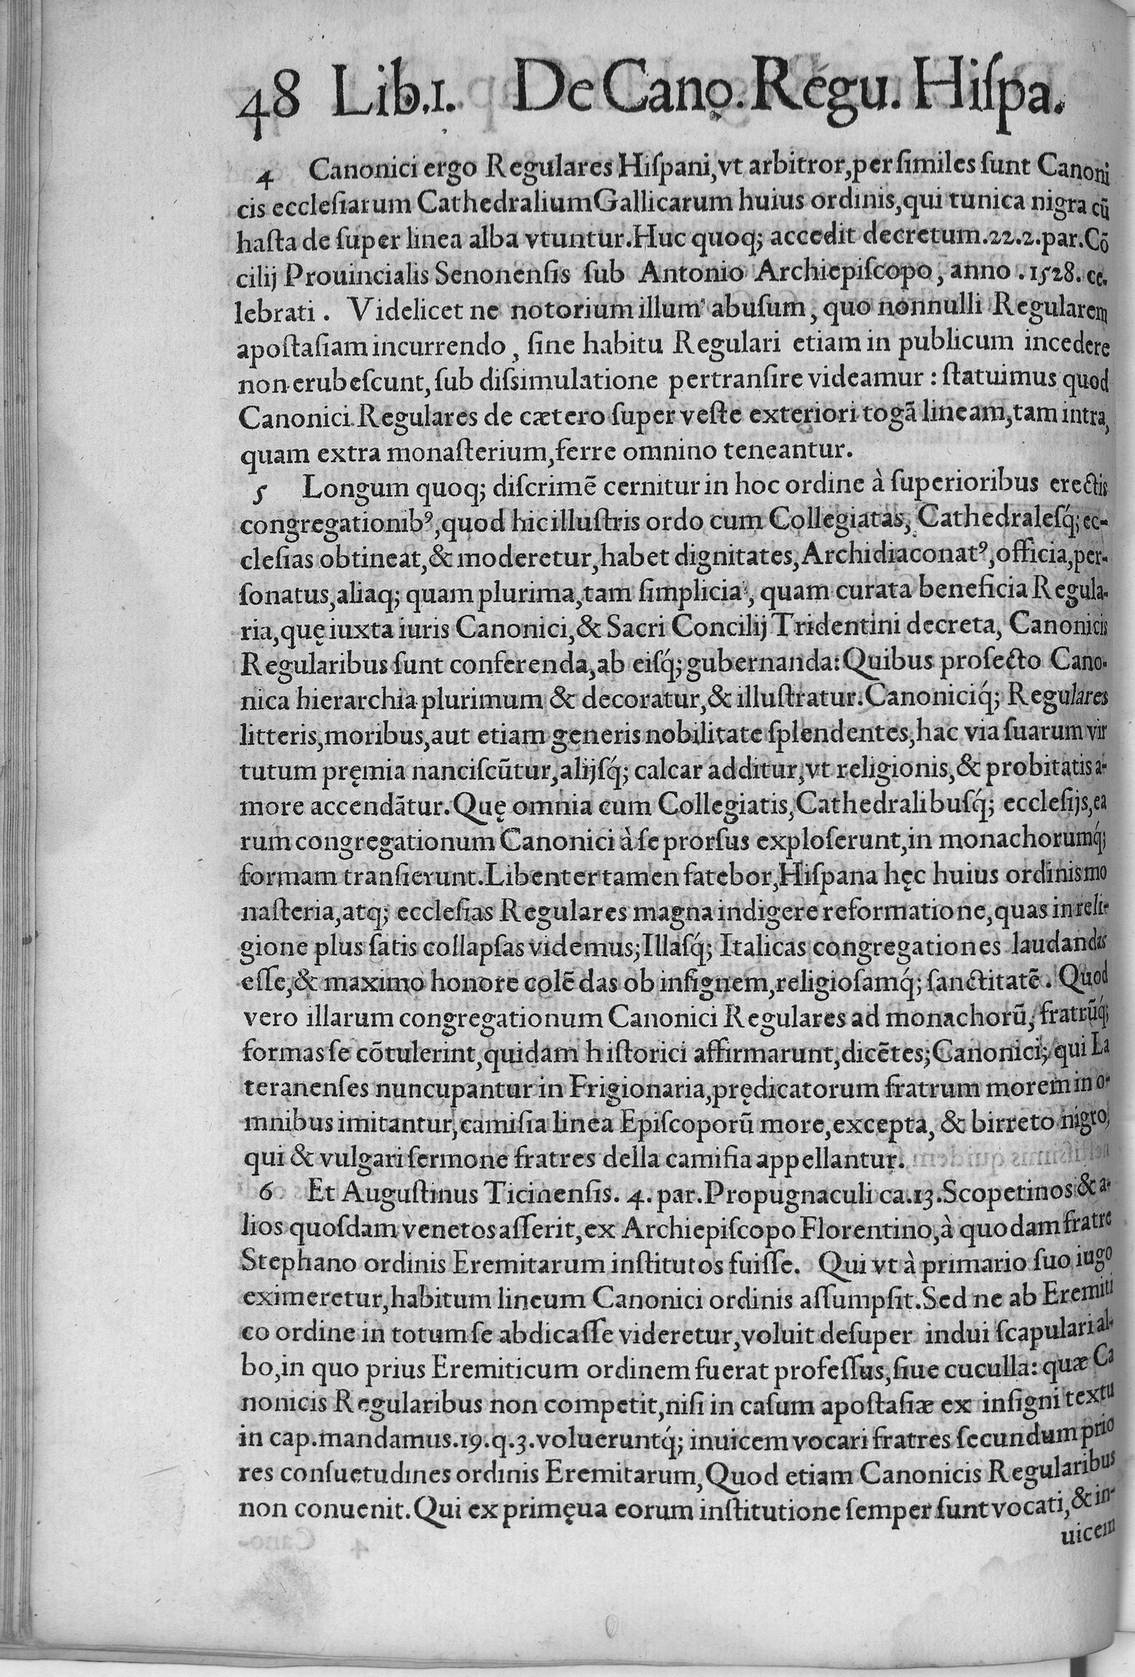 48 Lib.1. De Cano. Regu. Hiſpa.
4 Canonici ergo Regulares Hiſpani, vt arbitror, per ſimiles ſunt Canoni
cis eccleſiarum Cathedralium Gallicarum huius ordinis, qui tunica nigra cũ
haſta de ſuper linea alba vtuntur. Huc quoq; accedit decretum. 22. 2. par. Cõ
cilij Prouincialis Senonenſis ſub Antonio Archiepiſcopo, anno . 1528. ce.
lebrati . Videlicet ne notorium illum abuſum, quo nonnulli Regularem
apoſtaſiam incurrendo, ſine habitu Regulari etiam in publicum incedere
non erubeſcunt, ſub diſsimulatione pertranſire videamur : ſtatuimus quod
Canonici Regulares de cætero ſuper veſte exteriori togã lineam, tam intra,
quam extra monaſterium, ferre omnino teneantur.
5 Longum quoq; diſcrimẽ cernitur in hoc ordine à ſuperioribus erectis
congregationibꝰ, quod hic illuſtris ordo cum Collegiatas, Cathedraleſq́; ec-
cleſias obtineat, & moderetur, habet dignitates, Archidiaconatꝰ, officia, per-
ſonatus, aliaq; quam plurima, tam ſimplicia, quam curata beneficia Regula-
ria, quę iuxta iuris Canonici, & Sacri Concilij Tridentini decreta, Canonicis
Regularibus ſunt conferenda, ab eiſq́; gubernanda: Quibus profecto Cano-
nica hierarchia plurimum & decoratur, & illuſtratur. Canoniciq́; Regulares
litteris, moribus, aut etiam generis nobilitate ſplendentes, hac via ſuarum vir
tutum pręmia nanciſcũtur, alijſq́; calcar additur, vt religionis, & probitatis a-
more accendãtur. Quę omnia cum Collegiatis, Cathedralibuſq́; eccleſijs, ea
rum congregationum Canonici à ſe prorſus exploſerunt, in monachorumq́;
formam tranſierunt. Libenter tamen fatebor, Hiſpana hęc huius ordinis mo
naſteria, atq; eccleſias Regulares magna indigere reformatione, quas in reli-
gione plus ſatis collapſas videmus; Illaſq́; Italicas congregationes laudandas
eſſe, & maximo honore colẽ das ob inſignem, religioſamq́; ſanctitatẽ. Quod
vero illarum congregationum Canonici Regulares ad monachorũ, fratrũq́;
formas ſe cõtulerint, quidam hiſtorici affirmarunt, dicẽtes; Canonici; qui La
teranenſes nuncupantur in Frigionaria, prędicatorum fratrum morem in o-
mnibus imitantur, camiſia linea Epiſcoporũ more, excepta, & birreto nigro,
qui & vulgari ſermone fratres della camiſia appellantur.
6 Et Auguſtinus Ticinenſis. 4. par. Propugnaculi ca. 13. Scopetinos & a-
lios quoſdam venetos aſſerit, ex Archiepiſcopo Florentino, à quodam fratre
Stephano ordinis Eremitarum inſtitutos fuiſſe. Qui vt à primario ſuo iugo
eximeretur, habitum lineum Canonici ordinis aſſumpſit. Sed ne ab Eremiti
co ordine in totum ſe abdicaſſe videretur, voluit deſuper indui ſcapulari al-
bo, in quo prius Eremiticum ordinem fuerat profeſſus, ſiue cuculla: quæ Ca
nonicis Regularibus non competit, niſi in caſum apoſtaſiæ ex inſigni textu
in cap. mandamus. 19. q. 3. volueruntq́; inuicem vocari fratres ſecundum prio
res conſuetudines ordinis Eremitarum, Quod etiam Canonicis Regularibus
non conuenit. Qui ex primęua eorum inſtitutione ſemper ſunt vocati, & in-
uicem